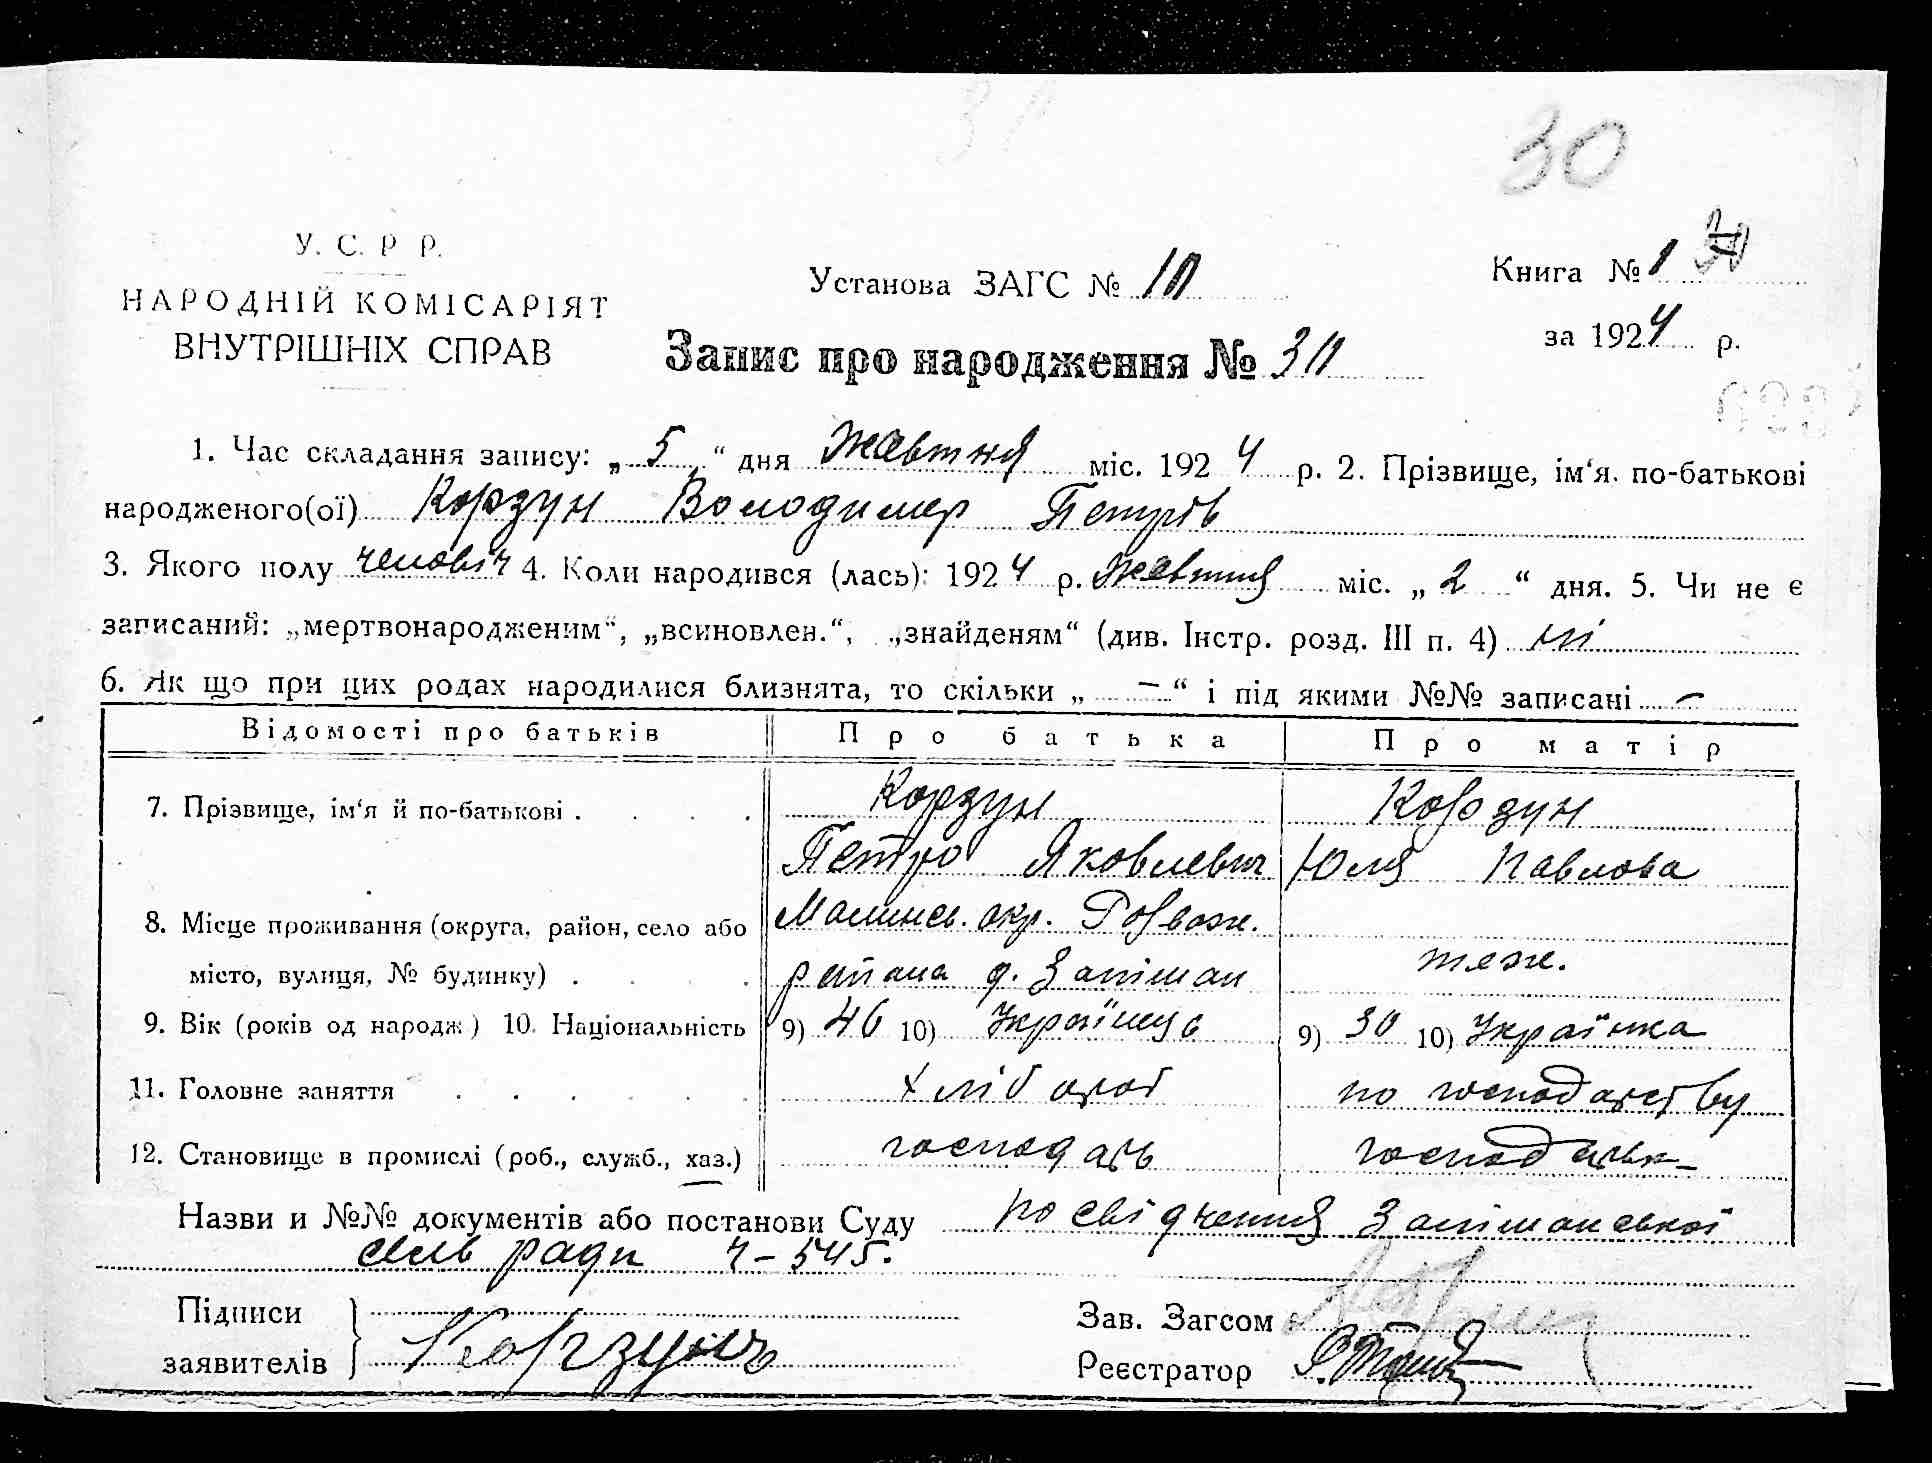 30
У. С. Р Р.
Установа ЗАГС № 10
Книга № 1
НАРОДНІЙ КОМІСАРІЯТ
ВНУТРІШНІХ СПРАВ
Запис про народження № 30
за 1924 р.
1. Час складання запису: „ 5 “ дня Жовтня міс. 1924 р. 2. Прізвище, ім‘я. по-батькові
народженого(ої) Корзун Володимер Петрів
3. Якого полу человіч 4. Коли народився (лась): 1924 р. Жовтня міс. „ 2 “ дня. 5. Чи не є
записаний: „мертвонародженим“, „всиновлен.“, „знайденям“ (див. Інстр. розд. III п. 4) ні
6. Як що при цих родах народилися близнята, то скільки „ — “ і під якими №№ записані —
Відомості про батьків Про батька Про матір
7. Прізвище, ім‘я й по-батькові . . . . Корзун Корзун
Петро Яковлевич Юля Павлова
8. Місце проживання (округа, район, село або Малинсь. окр. Розваж.
місто, вулиця, № будинку) . . . . района д. Заліман теж.
9. Вік (років од народж.) 10. Національність 9) 46 10) Українець 9) 30 10) Українка
11. Головне заняття . . . . . . хлібороб по господарству
12. Становище в промислі (роб., служб., хаз.) господарь господарьк-
Назви и №№ документів або постанови Суду посвідчення Заліманської
сель ради ч-545.
Підписи Зав. Загсом
заявителів Корзунъ Реєстратор